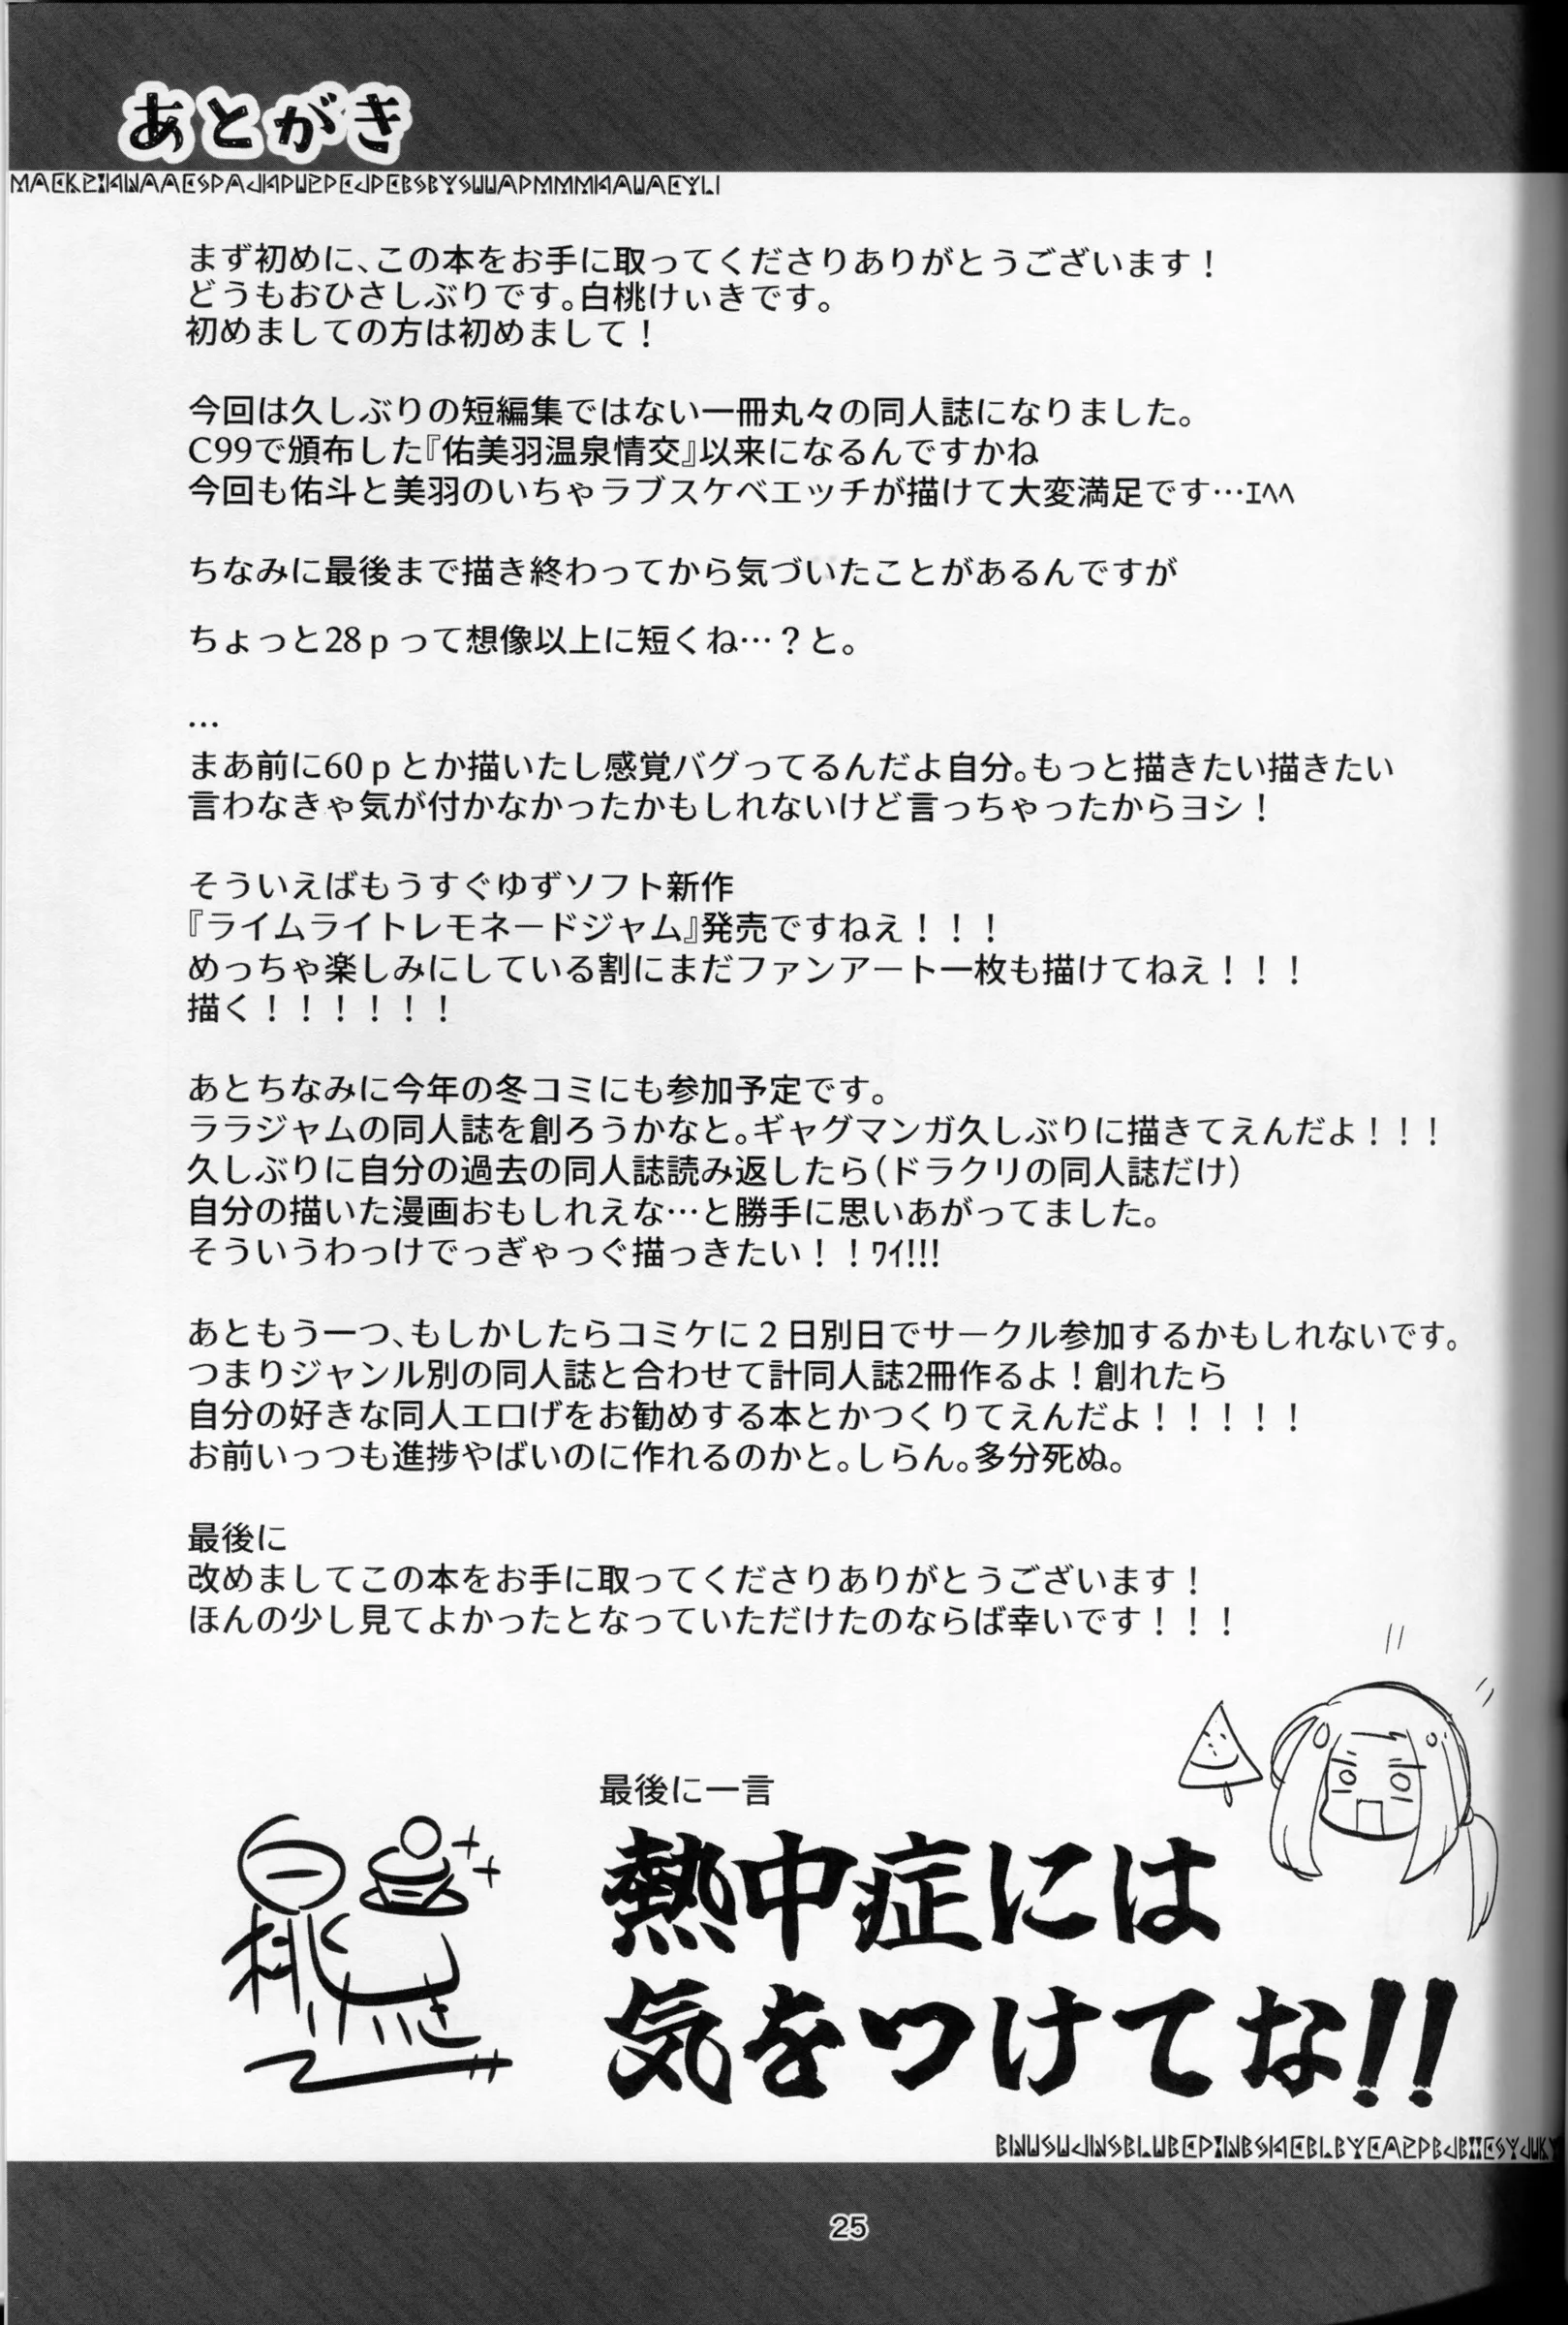 あとがき
まず初めに、この本をお手に取ってくださりありがとうございます！
どうもおひさしぶりです。白桃けぃきです。
初めましての方は初めまして！
今回は久しぶりの短編集ではない一冊丸々の同人誌になりました。
C99で頒布した『佑美羽温泉情交』以来になるんですかね
今回も佑斗と美羽のいちゃラブスケベエッチが描けて大変満足です…ｴﾍﾍ
ちなみに最後まで描き終わってから気づいたことがあるんですが
ちょっと28ｐって想像以上に短くね…？と。
…
まあ前に60ｐとか描いたし感覚バグってるんだよ自分。もっと描きたい描きたい
言わなきゃ気が付かなかったかもしれないけど言っちゃったからヨシ！
そういえばもうすぐゆずソフト新作
『ライムライトレモネードジャム』発売ですねえ！！！
めっちゃ楽しみにしている割にまだファンアート一枚も描けてねえ！！！
描く！！！！！！
あとちなみに今年の冬コミにも参加予定です。
ララジャムの同人誌を創ろうかなと。ギャグマンガ久しぶりに描きてえんだよ！！！
久しぶりに自分の過去の同人誌読み返したら（ドラクリの同人誌だけ）
自分の描いた漫画おもしれえな…と勝手に思いあがってました。
そういうわっけでっぎゃっぐ描っきたい！！ﾜｲ!!!
あともう一つ、もしかしたらコミケに２日別日でサークル参加するかもしれないです。
つまりジャンル別の同人誌と合わせて計同人誌2冊作るよ！創れたら
自分の好きな同人エロげをお勧めする本とかつくりてえんだよ！！！！！
お前いっつも進捗やばいのに作れるのかと。しらん。多分死ぬ。
最後に
改めましてこの本をお手に取ってくださりありがとうございます！
ほんの少し見てよかったとなっていただけたのならば幸いです！！！
最後に一言
熱中症には
気をつけてな!!
25